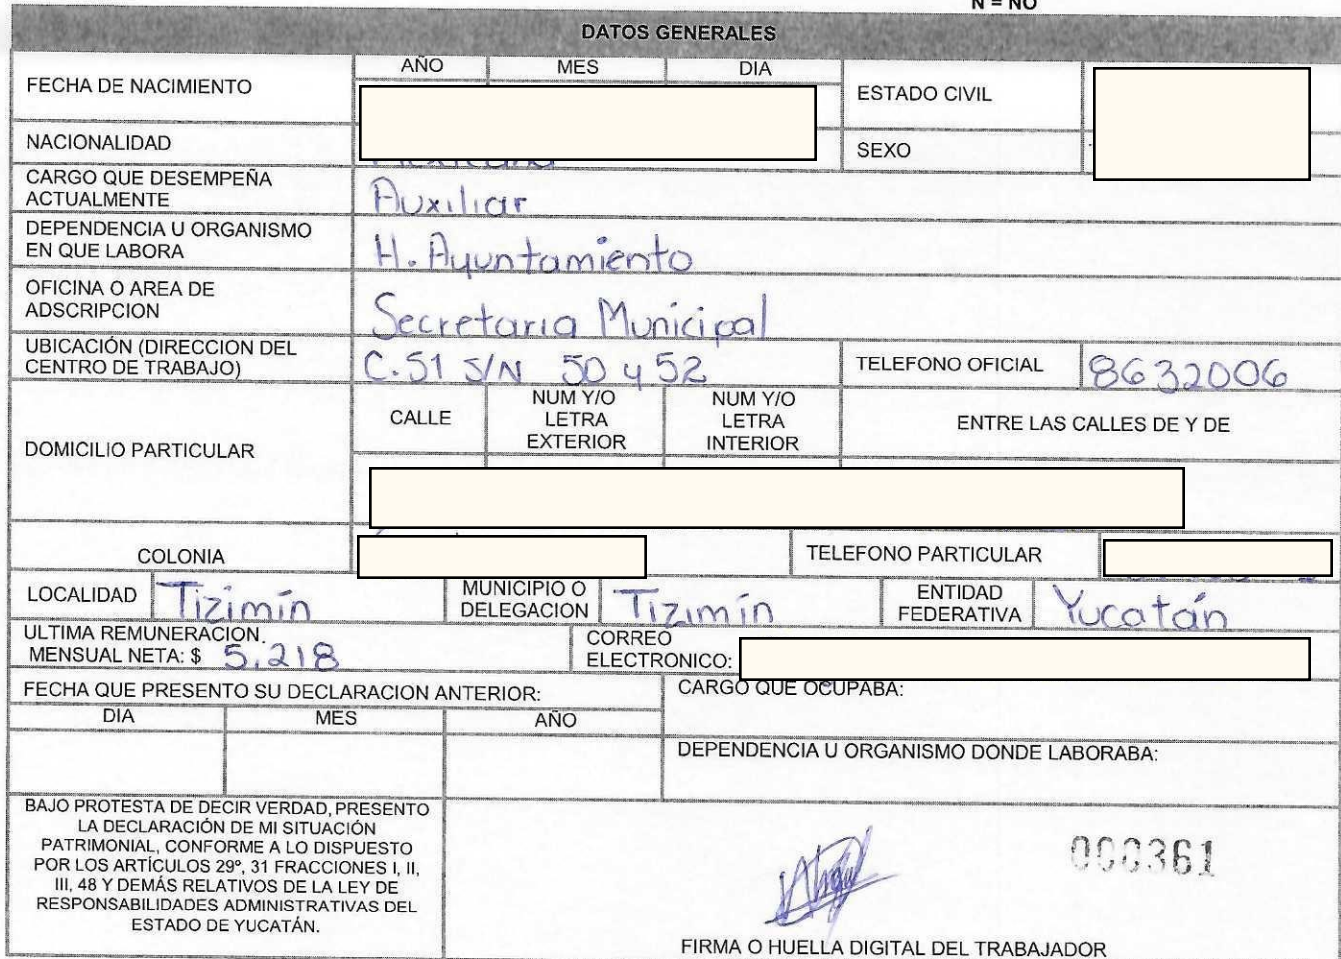 N = NO
DATOS GENERALES
FECHA DE NACIMIENTO
AÑO MES DIA
ESTADO CIVIL
NACIONALIDAD
SEXO
CARGO QUE DESEMPEÑA
ACTUALMENTE
Auxiliar
DEPENDENCIA U ORGANISMO
EN QUE LABORA
H. Ayuntamiento
OFICINA O AREA DE
ADSCRIPCION
Secretaria Municipal
UBICACIÓN (DIRECCION DEL
CENTRO DE TRABAJO)
C.51 S/N 50 y 52
TELEFONO OFICIAL 8632006
DOMICILIO PARTICULAR
CALLE
NUM Y/O
LETRA
EXTERIOR
NUM Y/O
LETRA
INTERIOR
ENTRE LAS CALLES DE Y DE
COLONIA
TELEFONO PARTICULAR
LOCALIDAD Tizimín
MUNICIPIO O
DELEGACION
Tizimín
ENTIDAD
FEDERATIVA
Yucatán
ULTIMA REMUNERACION.
MENSUAL NETA: $ 5,218
CORREO
ELECTRONICO:
FECHA QUE PRESENTO SU DECLARACION ANTERIOR:
CARGO QUE OCUPABA:
DIA MES AÑO
DEPENDENCIA U ORGANISMO DONDE LABORABA:
BAJO PROTESTA DE DECIR VERDAD, PRESENTO
LA DECLARACIÓN DE MI SITUACIÓN
PATRIMONIAL, CONFORME A LO DISPUESTO
POR LOS ARTÍCULOS 29º, 31 FRACCIONES I, II,
III, 48 Y DEMÁS RELATIVOS DE LA LEY DE
RESPONSABILIDADES ADMINISTRATIVAS DEL
ESTADO DE YUCATÁN.
000361
FIRMA O HUELLA DIGITAL DEL TRABAJADOR